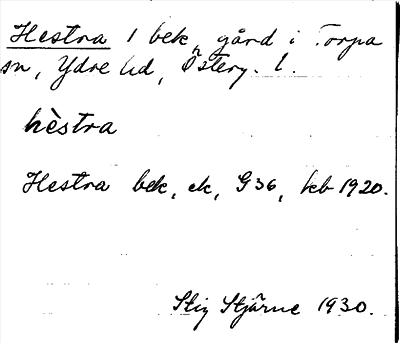 Hestra 1 bek, gård i Torpa
sn, Ydre hd, Österg. l.
hèstra
Hestra bek, ek, G36, kb 1920.
Stig Stjärne 1930.